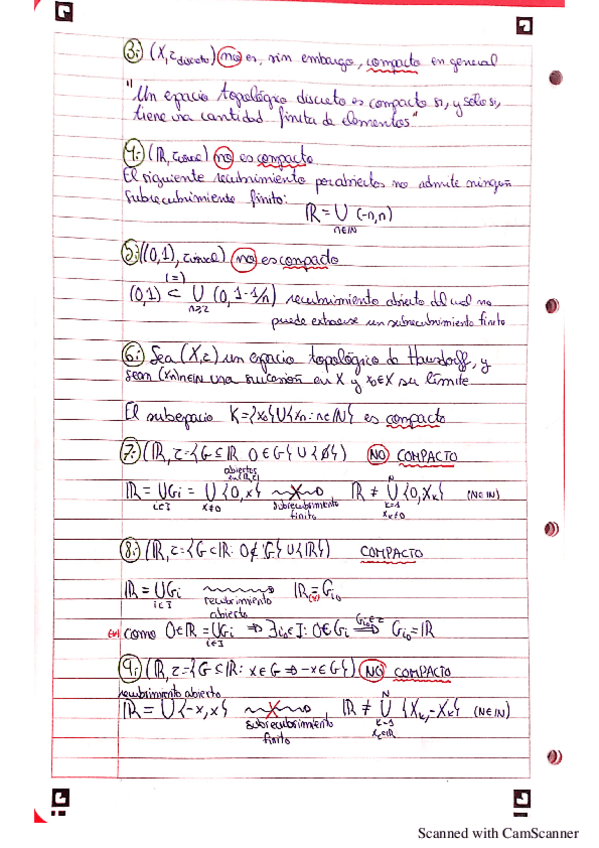 3: (X, τdiscreto) no es, sin embargo, compacto en general
"Un espacio topológico discreto es compacto si, y solo si,
tiene una cantidad finita de elementos"
4: (ℝ, τusual) no es compacto
El siguiente recubrimiento por abiertos no admite ningún
subrecubrimiento finito:
ℝ = ∪ (-n,n)
n∈ℕ
5: ((0,1), τusual) no es compacto
(=)
(0,1) ⊂ ∪ (0, 1-1/n) recubrimiento abierto del cual no
n≥2
puede extraerse un subrecubrimiento finito
6: Sea (X,τ) un espacio topológico de Hausdorff, y
sean (xn)n∈ℕ una sucesión en X y x₀∈X su límite
El subespacio K={x₀}∪{xn: n∈ℕ} es compacto
7: (ℝ, τ={G⊆ℝ 0∈G}∪{∅}) NO COMPACTO
abiertos
en (ℝ,τ)
ℝ = ∪Gi = ∪ {0,x} ℝ ≠ ∪ {0,xk} (N∈ℕ)
i∈I x≠0 subrecubrimiento finito k=1 N
xk≠0
8: (ℝ, τ={G⊂ℝ: 0∉G}∪{ℝ}) COMPACTO
ℝ = ∪Gi recubrimiento abierto ℝ = Gi₀
i∈I (*)
(*) como 0∈ℝ = ∪Gi ⇒ ∃i₀∈I: 0∈Gi Gi₀∈τ ⇒ Gi₀=ℝ
i∈I
9: (ℝ, τ={G⊆ℝ: x∈G ⇒ -x∈G}) NO COMPACTO
recubrimiento abierto
ℝ = ∪{-x,x} ℝ ≠ ∪ {xk,-xk} (N∈ℕ)
subrecubrimiento finito k=1 N
xk∈ℝ
Scanned with CamScanner